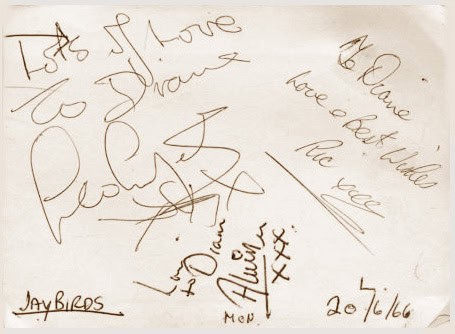 Lots of Love
To Diane
Leo Lyons
X
To Diane
Love & Best Wishes
Ric xxx
Love
to Diane
Alvin Lee
XXX.
MON.
JAYBIRDS.
20/6/66